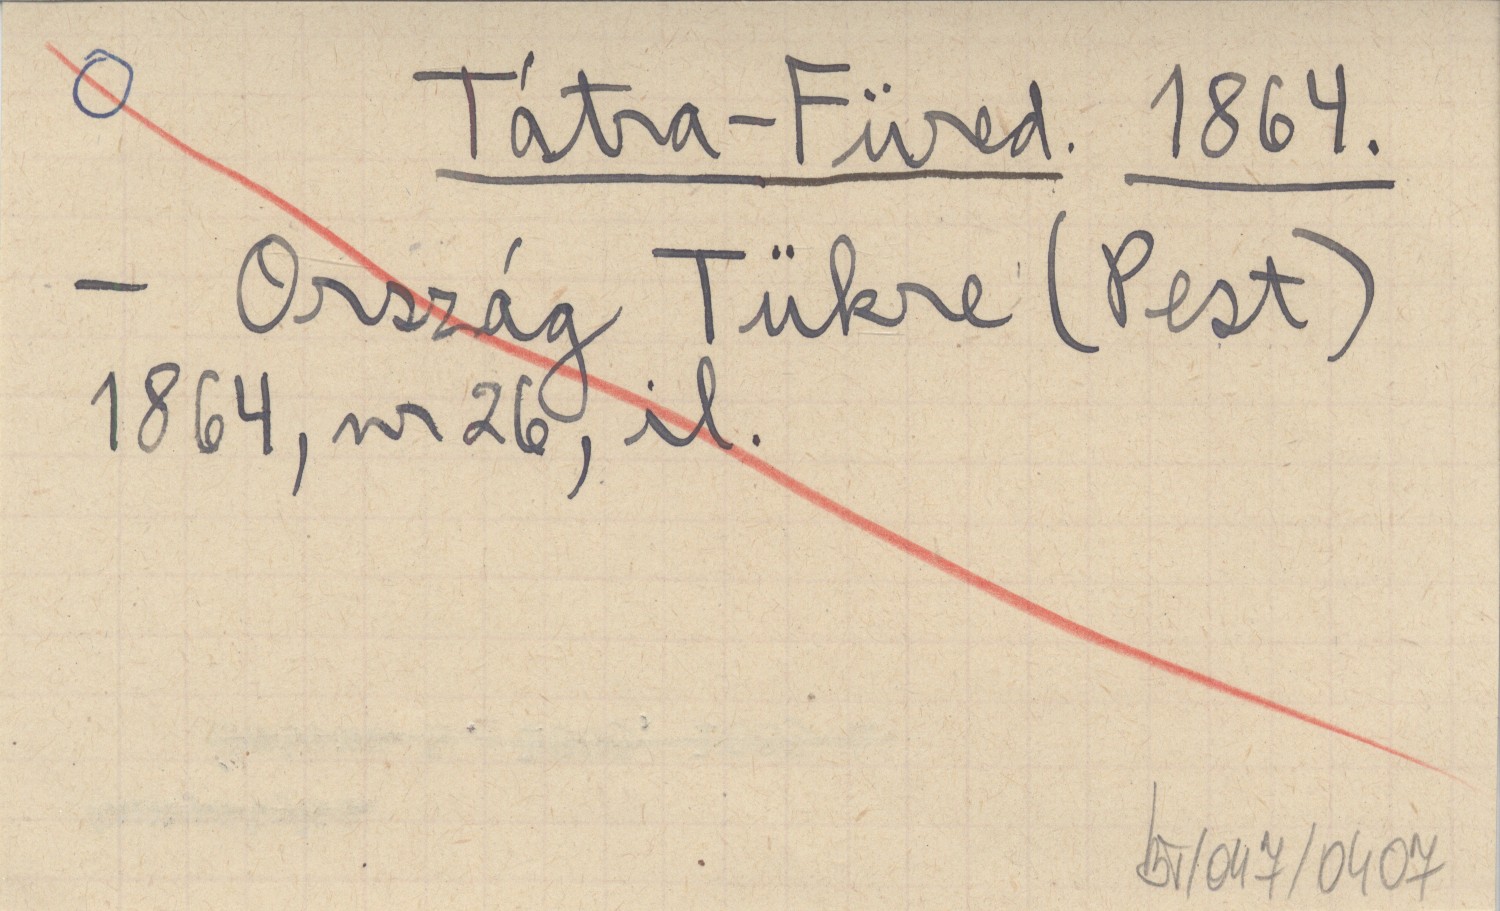 Tátra-Füred. 1864.
- Ország Tükre (Pest)
1864, nr 26, il.
/047/0407